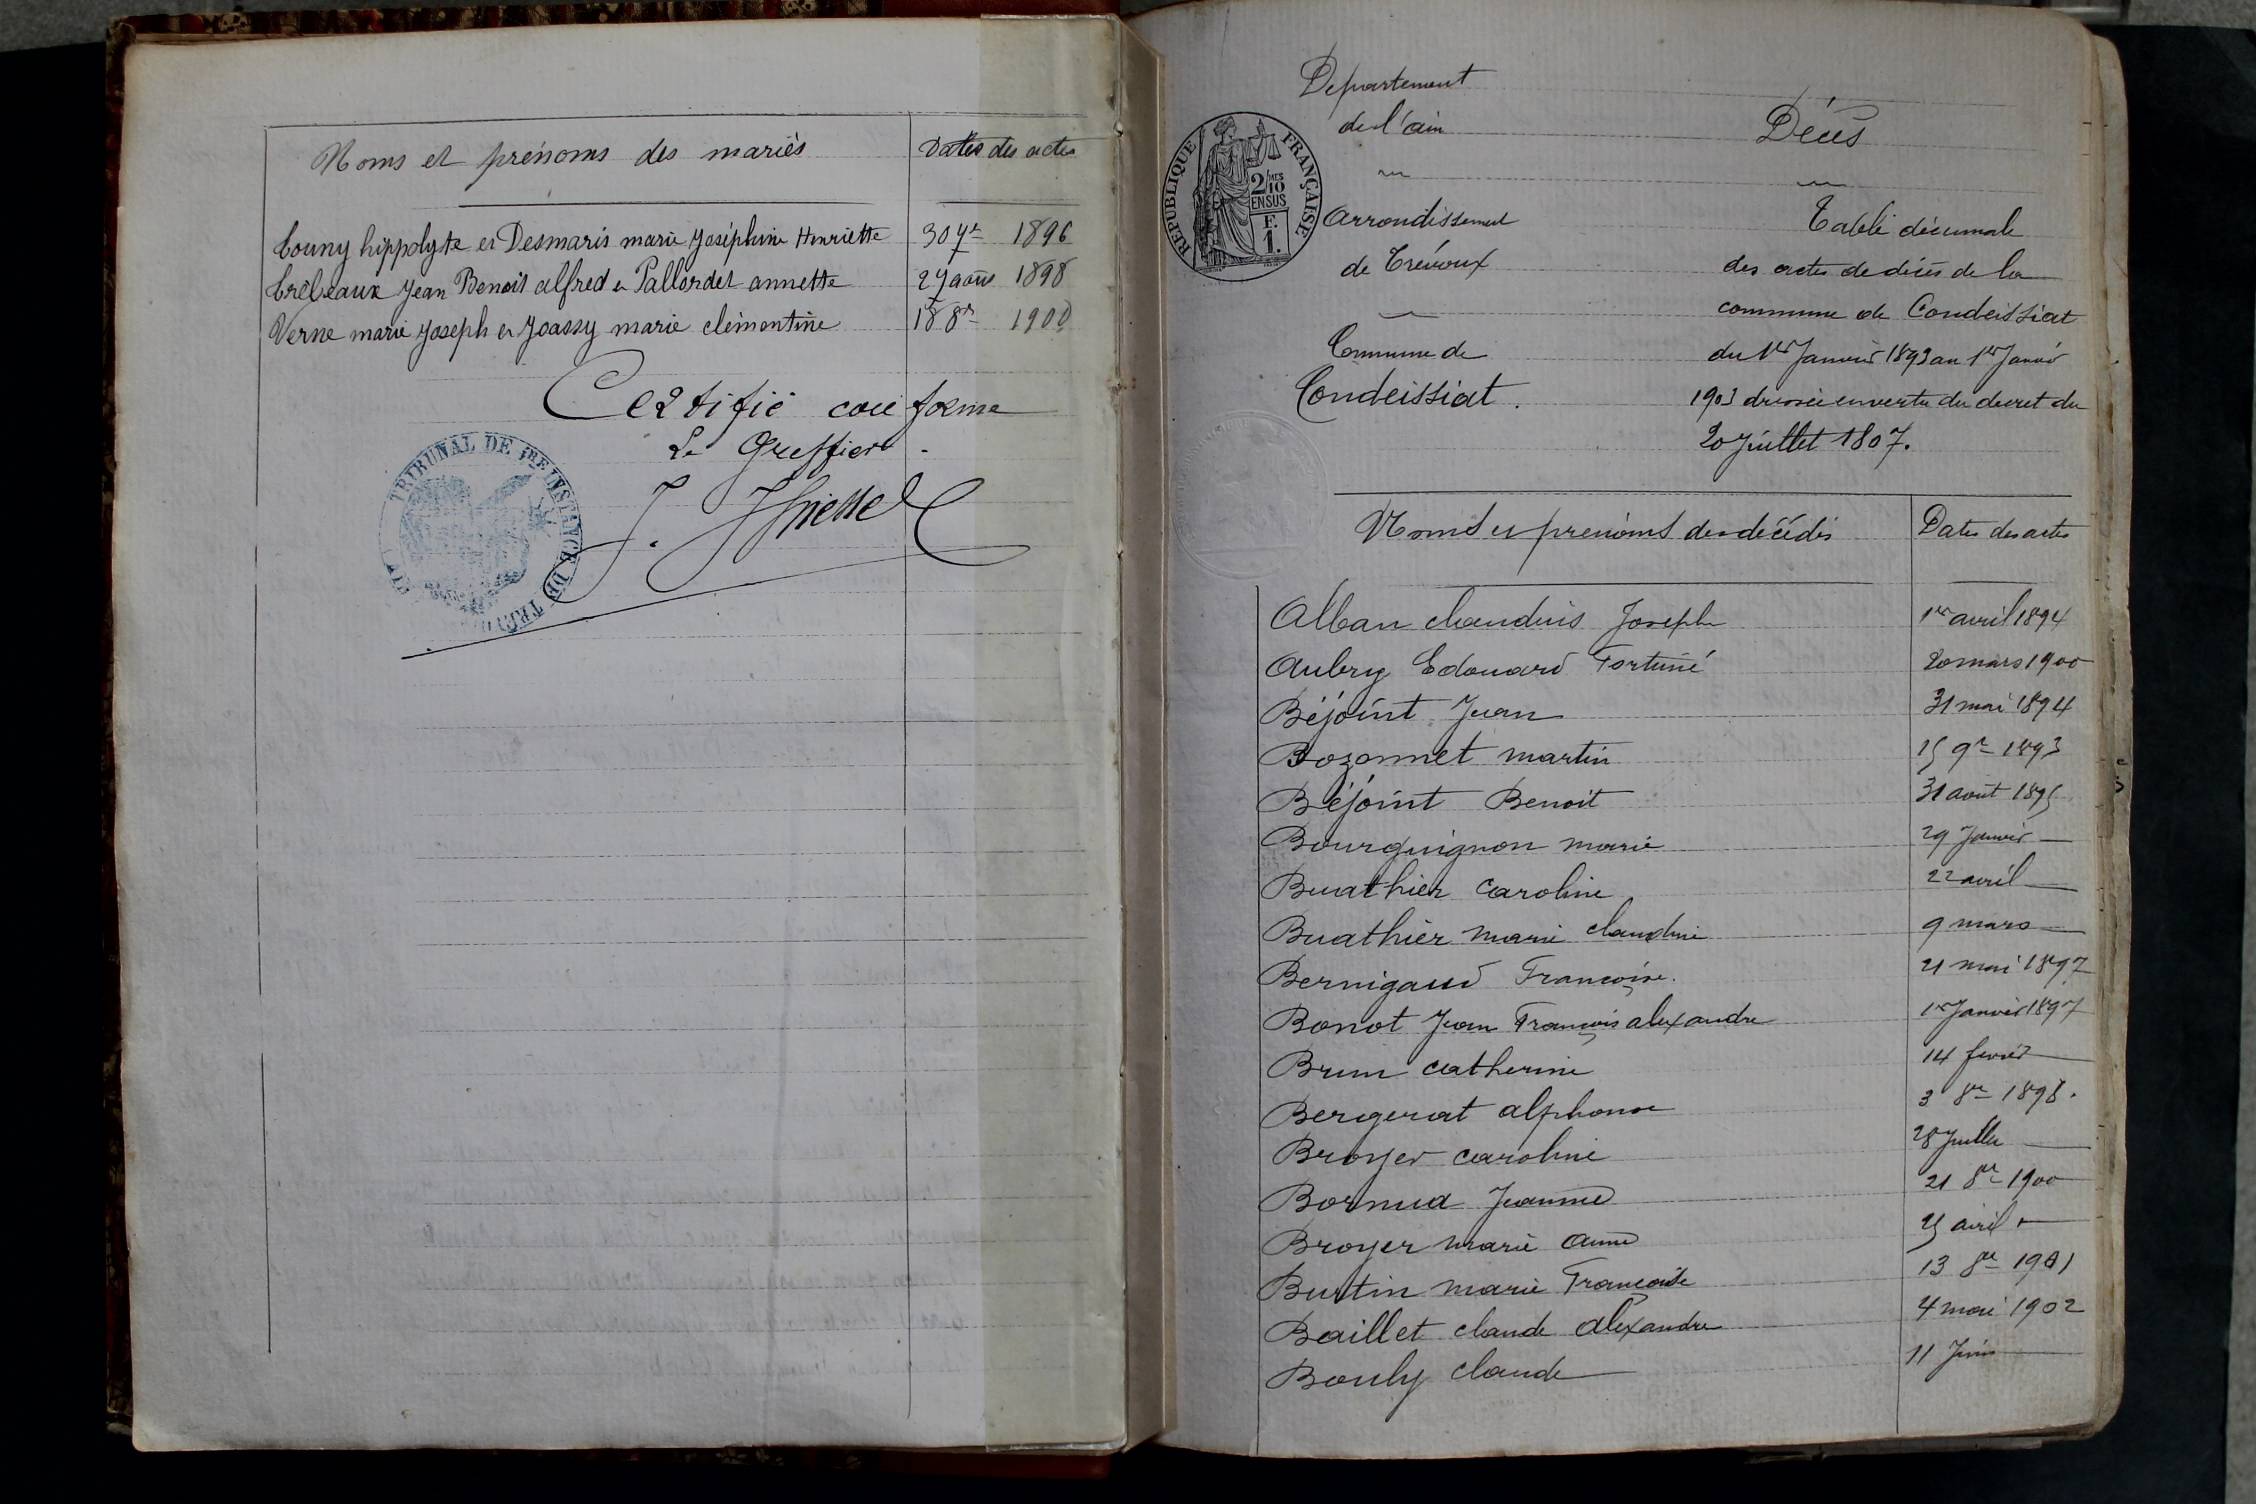 Noms et prénoms des mariés
Dates des actes
Touny hippolyte et Desmaris marie Joséphine Henriette 30 7re 1896
Trébeaux Jean Benoit alfred et Pallordet annette 27 août 1898
Verne marie Joseph et Joassy marie clémentine 18 8re 1900
Certifié conforme
Le Greffier
TRIBUNAL DE 1RE INSTANCE DE
Département
de l'ain
Décès
REPUBLIQUE FRANÇAISE
2/10 MES
EN SUS
F.
1.
Arrondissement
de Trévoux
Commune de
Condeissiat.
Table décennale
des actes de décès de la
commune de Condeissiat
du 1er Janvier 1893 au 1er Janvr
1903 dressée en vertu du decret du
20 Juillet 1807.
Noms et prénoms des décédés
Dates des actes
Alban claudius Joseph 1er avril 1894
Aubry Edouard Fortuné 20 mars 1900
Béjoint Jean 31 mai 1894
Bozonnet martin 15 9re 1893
Béjoint Benoit 31 août 1895
Bourguignon marie 29 Janvier —
Buathier caroline 22 avril —
Buathier marie claudine 9 mars —
Bernigaud Françoise. 21 mai 1897
Bonot Jean François alexandre 1er Janvier 1897
Brun catherine 14 fevrier —
Bergerat alphonse 3 8re 1898.
Broyer caroline 28 Juillet —
Bornua Jeanne 21 8re 1900
Broyer marie anne 25 avril —
Burtin marie Françoise 13 8re 1901
Baillet claude alexandre 4 mai 1902
Bouly claude 11 Juin —